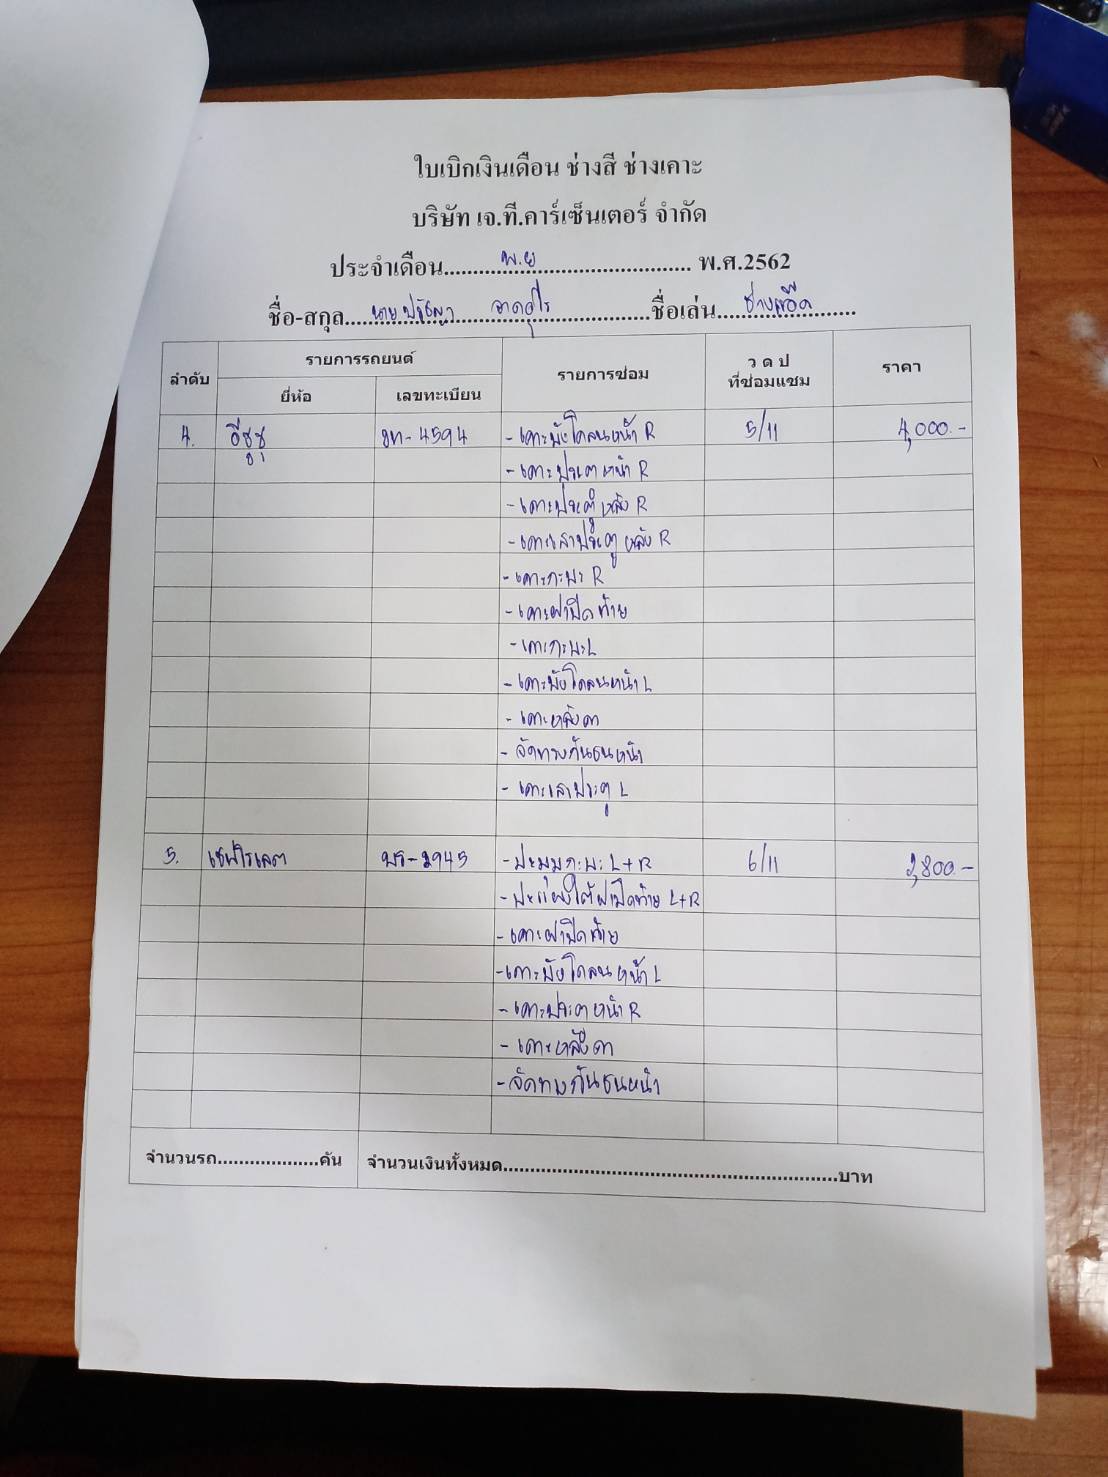 ใบเบิกเงินเดือน ช่างสี ช่างเคาะ
บริษัท เจ.ที.คาร์เซ็นเตอร์ จำกัด
ประจำเดือน......พ.ย......พ.ศ.2562
ชื่อ-สกุล......นายปรัชญา......ชื่อเล่น......ช่างแอ๊ด......
ลำดับ รายการรถยนต์ รายการซ่อม ว ด ป ราคา
ยี่ห้อ เลขทะเบียน ที่ซ่อมแซม
4. อีซูซุ ขท-4594 - เคาะบังโคลนหน้า R 5/11 4,000.-
- เคาะประตูหน้า R
- เคาะประตูหลัง R
- เคาะเสาประตูหลัง R
- เคาะกะบะ R
- เคาะฝาปิดท้าย
- เคาะกะบะ L
- เคาะบังโคลนหน้า L
- เคาะหลังคา
- จัดทรงกันชนหน้า
- เคาะเสาประตู L
5. เชฟโรเลต -2945 - ปะมุมกะบะ L+R 6/11 2,800.-
- ปะแผงใต้ฝาปิดท้าย L+R
- เคาะฝาปิดท้าย
- เคาะบังโคลนหน้า L
- เคาะประตูหน้า R
- เคาะหลังคา
- จัดทรงกันชนหน้า
จำนวนรถ....................คัน จำนวนเงินทั้งหมด................................................................................บาท